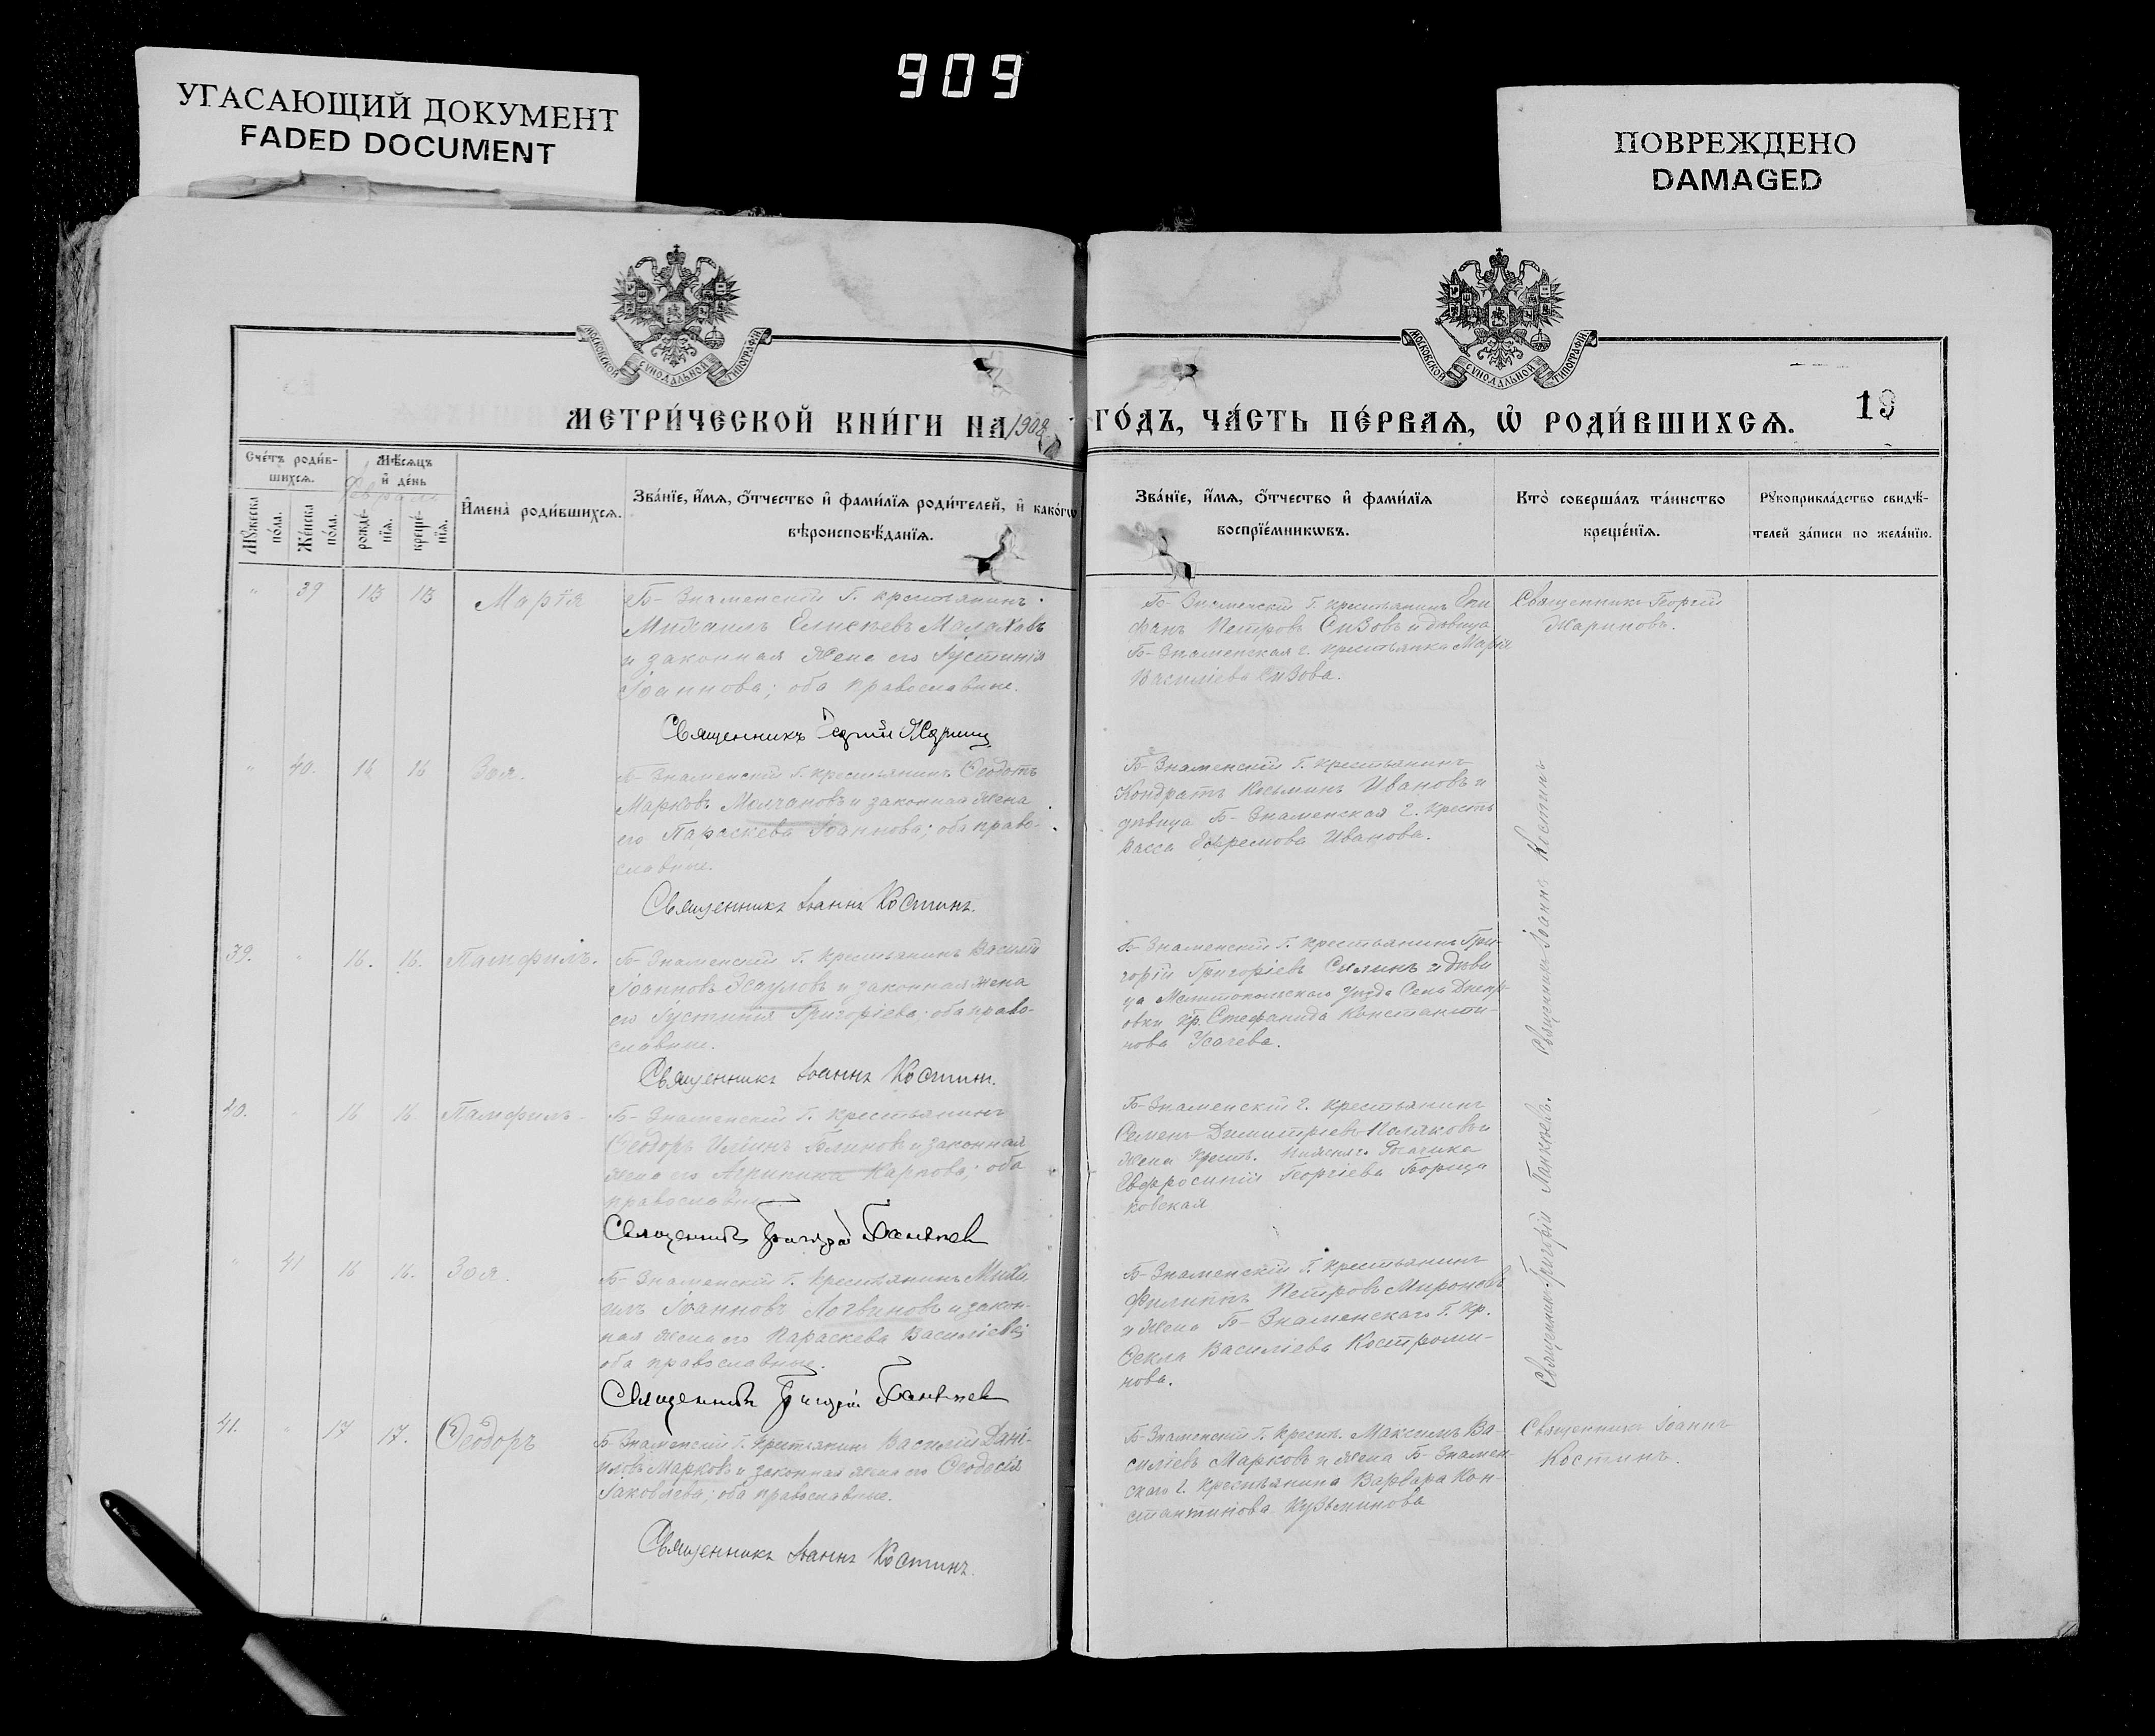 УГАСАЮЩИЙ ДОКУМЕНТ
FADED DOCUMENT
909
ПОВРЕЖДЕНО
DAMAGED
МОСКОВСКОЙ СѴНОДАЛЬНОЙ ТИПОГРАФІИ
МОСКОВСКОЙ СѴНОДАЛЬНОЙ ТИПОГРАФІИ
МЕТРИ́ЧЕСКОЙ КНИ́ГИ НА 1908 ГО́ДЪ, ЧА́СТЬ ПЕ́РВАЯ, Ѡ҆ РОДИ́ВШИХСЯ.
19
Сче́тъ роди́в-
шихся.
Мѣ́сяцъ
и҆ де́нь
Февраль
Мꙋ́жеска по́ла.
Же́нска по́ла.
рожде́-
нїя.
креще́-
нїя.
И҆мена̀ роди́вшихся.
Зва́нїе, и҆́мя, ѻ҆́тчество и҆ фами́лїя роди́телей, и҆ како́гѡ
вѣроисповѣ́данїя.
Зва́нїе, и҆́мя, ѻ҆́тчество и҆ фами́лїя
воспрїе́мникѡвъ.
Кто̀ соверша́лъ та́инство
креще́нїя.
Рꙋкоприкла́дство свидѣ́-
телей за́писи по жела́нїю.
" 39 13 13 Марія
Б-Знаменскій Г. крестьянинъ
Михаилъ Елисѣевъ Малаховъ
и законная жена его Іустинія
Іоаннова; оба православные.
Священникъ Георгій Жариновъ
Б-Знаменскій Г. крестьянинъ Епи
фанъ Петровъ Сизовъ и дѣвица
Б-Знаменская г. крестьянка Марія
Василіева Сизова.
Священникъ Георгій
Жариновъ.
" 40. 16 16 Зоя.
Б-Знаменскій Г. крестьянинъ Ѳеодотъ
Марковъ Молчановъ и законная жена
его Параскева Іоаннова; оба право-
славные.
Священникъ Іоаннъ Костинъ.
Б-Знаменскій Г. крестьянинъ
Кондратъ Козьминъ Ивановъ и
дѣвица Б-Знаменская г. кресть
Васса Ефремова Иванова.
Священникъ Іоаннъ Костинъ
39. " 16. 16. Памфилъ.
Б-Знаменскій Г. крестьянинъ Василій
Іоанновъ Есауловъ и законная жена
его Іустинія Григоріева; оба право-
славные.
Священникъ Іоаннъ Костинъ.
Б-Знаменскій Г. крестьянинъ Гри-
горій Григоріевъ Силинъ и дѣви
ца Мелитопольскаго уѣзда Села Днепр-
овки кр. Стефанида Константи-
нова Усачева.
40. " 16 16. Памфилъ.
Б-Знаменскій Г. крестьянинъ
Ѳеодоръ Илiинъ Блиновъ и законная
жена его Агрипина Карпова; оба
православные.
Священникъ Григорій Панкѣев
Б-Знаменскій г. крестьянинъ
Семенъ Димитріевъ Поляковъ и
жена крест. Нижняго Рогачика
Евфросинія Георгіева Борица
ковская
Священникъ Григорій Панкѣевъ.
" 41 16 16. Зоя.
Б-Знаменскій Г. крестьянинъ Миха
илъ Іоанновъ Логвиновъ и закон-
ная жена его Параскева Василіева;
оба православные.
Священникъ Григорій Панкѣев
Б-Знаменскій Г. крестьянинъ
Филиппъ Петровъ Мироновъ
и жена Б-Знаменскаго Г. кр.
Ѳекла Василіева Костроми-
нова.
41. " 17 17. Ѳеодоръ
Б-Знаменскій Г. крестьянинъ Василій Дані-
иловъ Марковъ и законная жена его Ѳеодосія
Іаковлева; оба православные.
Священникъ Іоаннъ Костинъ.
Б-Знаменскій Г. крест. Максимъ Ва-
силіевъ Марковъ и жена Б-Знамен-
скаго г. крестьянина Варвара Кон-
стантинова Кузьминова
Священникъ Іоаннъ
Костинъ.